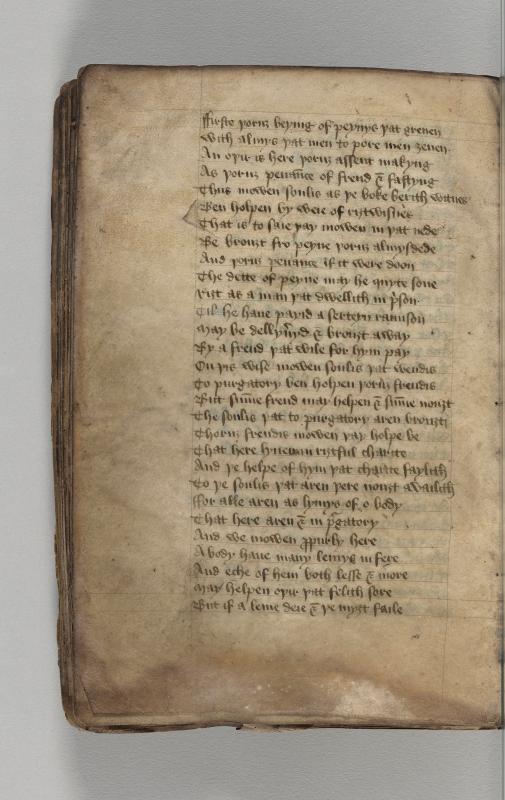 ffirste þoruȝ beying of peynys þat greuen
With almys þat men to pore men ȝeuen
An oþir is here þoruȝ assent makyng
As þoruȝ penaunce of frend & fastyng
Thus mowen soulis as þe boke berith witnes
Ben holpen by weie of riȝtwisnes
That is to saie þay mowen in þat nede
Be brouȝt fro peyne þoruȝ almysdede
And þoruȝ penance if it were doon
The dette of peyne may he quyte sone
Riȝt as a man þat dwellith in prison
Til he haue payid a serteyn raunson
May be delyueryd & brouȝt away
By a frend þat wile for hym pay
On þis wise mowen soulis þat wendis
To purgatory ben holpen þoruȝ frendis
But summe frend may helpen & summe nouȝt
The soulis þat to purgatory aren brouȝt
Thoruȝ frendis mowen þay holpe be
That here in riȝtful charite
And þe helpe of hym þat charite faylith
To þe soulis þat aren þere nouȝt awailith
ffor alle aren as lymys of o body
That here aren & in purgatory
And we mowen propurly here
A body haue many lemys in fere
And eche of hem both lesse & more
May helpen oþir þat felith sore
But if a leme deie & þe myȝt faile